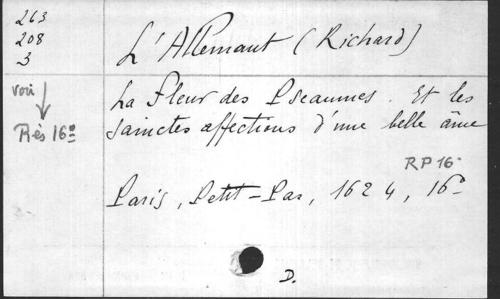 263
208
3
L'Allemant (Richard)
voir
Rés 16º
La Fleur des Pseaumes. Et les
sainctes affections d'une belle âme
RP 16.
Paris, Petit-Pas, 1624, 16º
D.